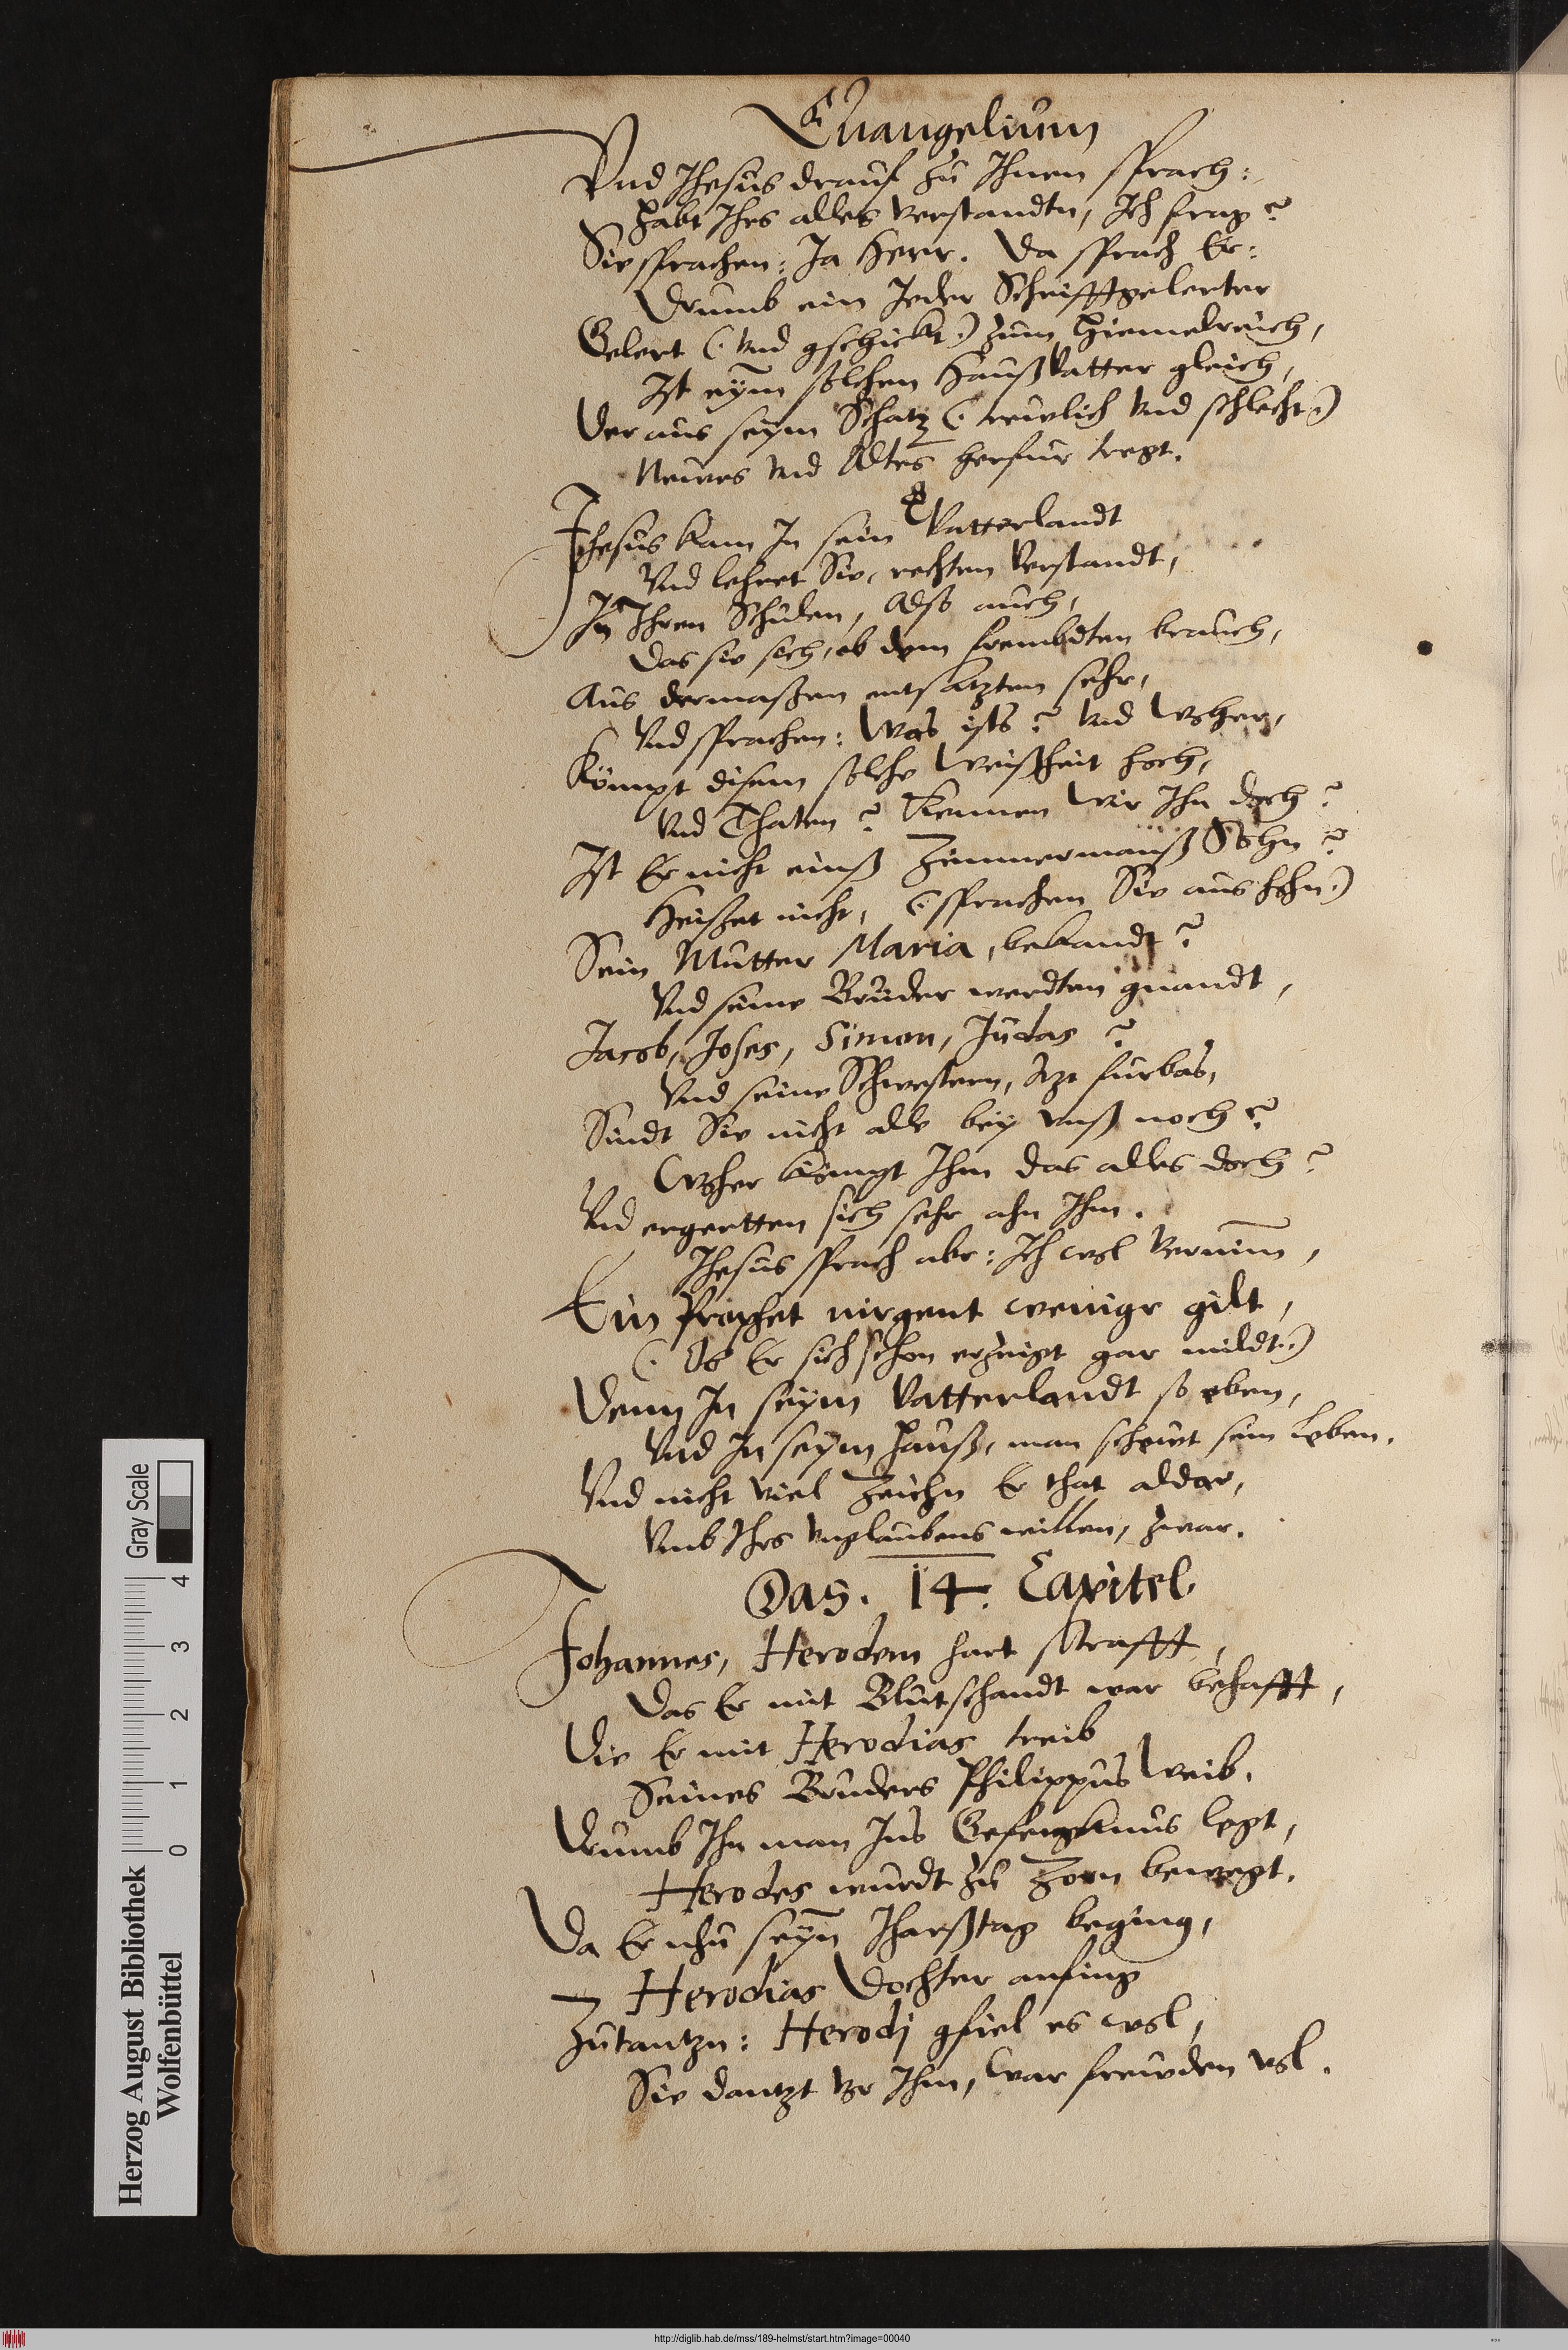 Euangelium
Vnd Jhesus drauf zu Jhnen sprach:
Habt Jhrs alles verstandtn, Jch frag?
Sie sprachen: Ja Herr. Da sprach Er:
Drumb ein Jeder Schrifftgelerter
Gelert (: vnd gschickt:) zum Himelreich,
Jst eym solchen Haußvatter gleich,
Der aus seym Schatz (: trewlich vnd schlecht:)
Newes vnd Altes herfur tregt.
Jhesus kam Jn sein Vatterlandt
Vnd lehret Sie, rechten verstandt,
Jn Jhren Schulen, Also auch,
Das sie sich, ob dem frembdten brauch,
Aus dermaßen entsatzten sehr,
Vnd sprachen: Was ists? vnd Woher,
Kömpt disem solche Weißheit hoch,
Vnd Thaten? Kennen Wir Jhn doch?
Jst Er nicht einß Zimmermanß Sohn?
Heißet nicht, (: sprachen Sie aus hohn:)
Sein Mutter Maria, bekandt?
Vnd seine Bruder werdten gnandt,
Jacob, Joses, Simon, Judas?
Vnd seine Schwestern, itzt furbas,
Sindt Sie nicht alle bey vnß noch?
Woher kömpt Jhm das alles doch?
Vnd ergertten sich sehr ahn Jhm.
Jhesus sprach abr: Jch wol vernimm,
Ein Prophet nirgent wenigr gilt,
(: Ob Er sich schon erzeigt gar mildt:)
Denn Jn seym Vatterlandt so eben,
Vnd Jn seym Hauß, man schewt sein leben.
Vnd nicht viel Zeichn Er that aldar,
Vmb Jhrs vnglaubens willen, zwar.
Das. 14. Capitel
Johannes, Herodem hart strafft,
Das Er mit Blutschandt war behafft,
Die Er mit Herodias treib
Seines Bruders Philippus Weib.
Drumb Jhn man Jns Gefengknus legt,
Herodes wurdt zu Zorn bewegt.
Da Er nhu seyn Jharßtag beging,
Herodias Dochter anfing
Zutantzn: Herodj gfiel es wol,
Sie dantzt vor Jhm, War freuden vol.
Herzog August Bibliothek
Wolfenbüttel
0 1 2 3 4
Gray Scale
http://diglib.hab.de/mss/189-helmst/start.htm?image=00040